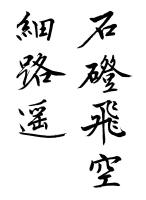 石磴飛空
細路遥